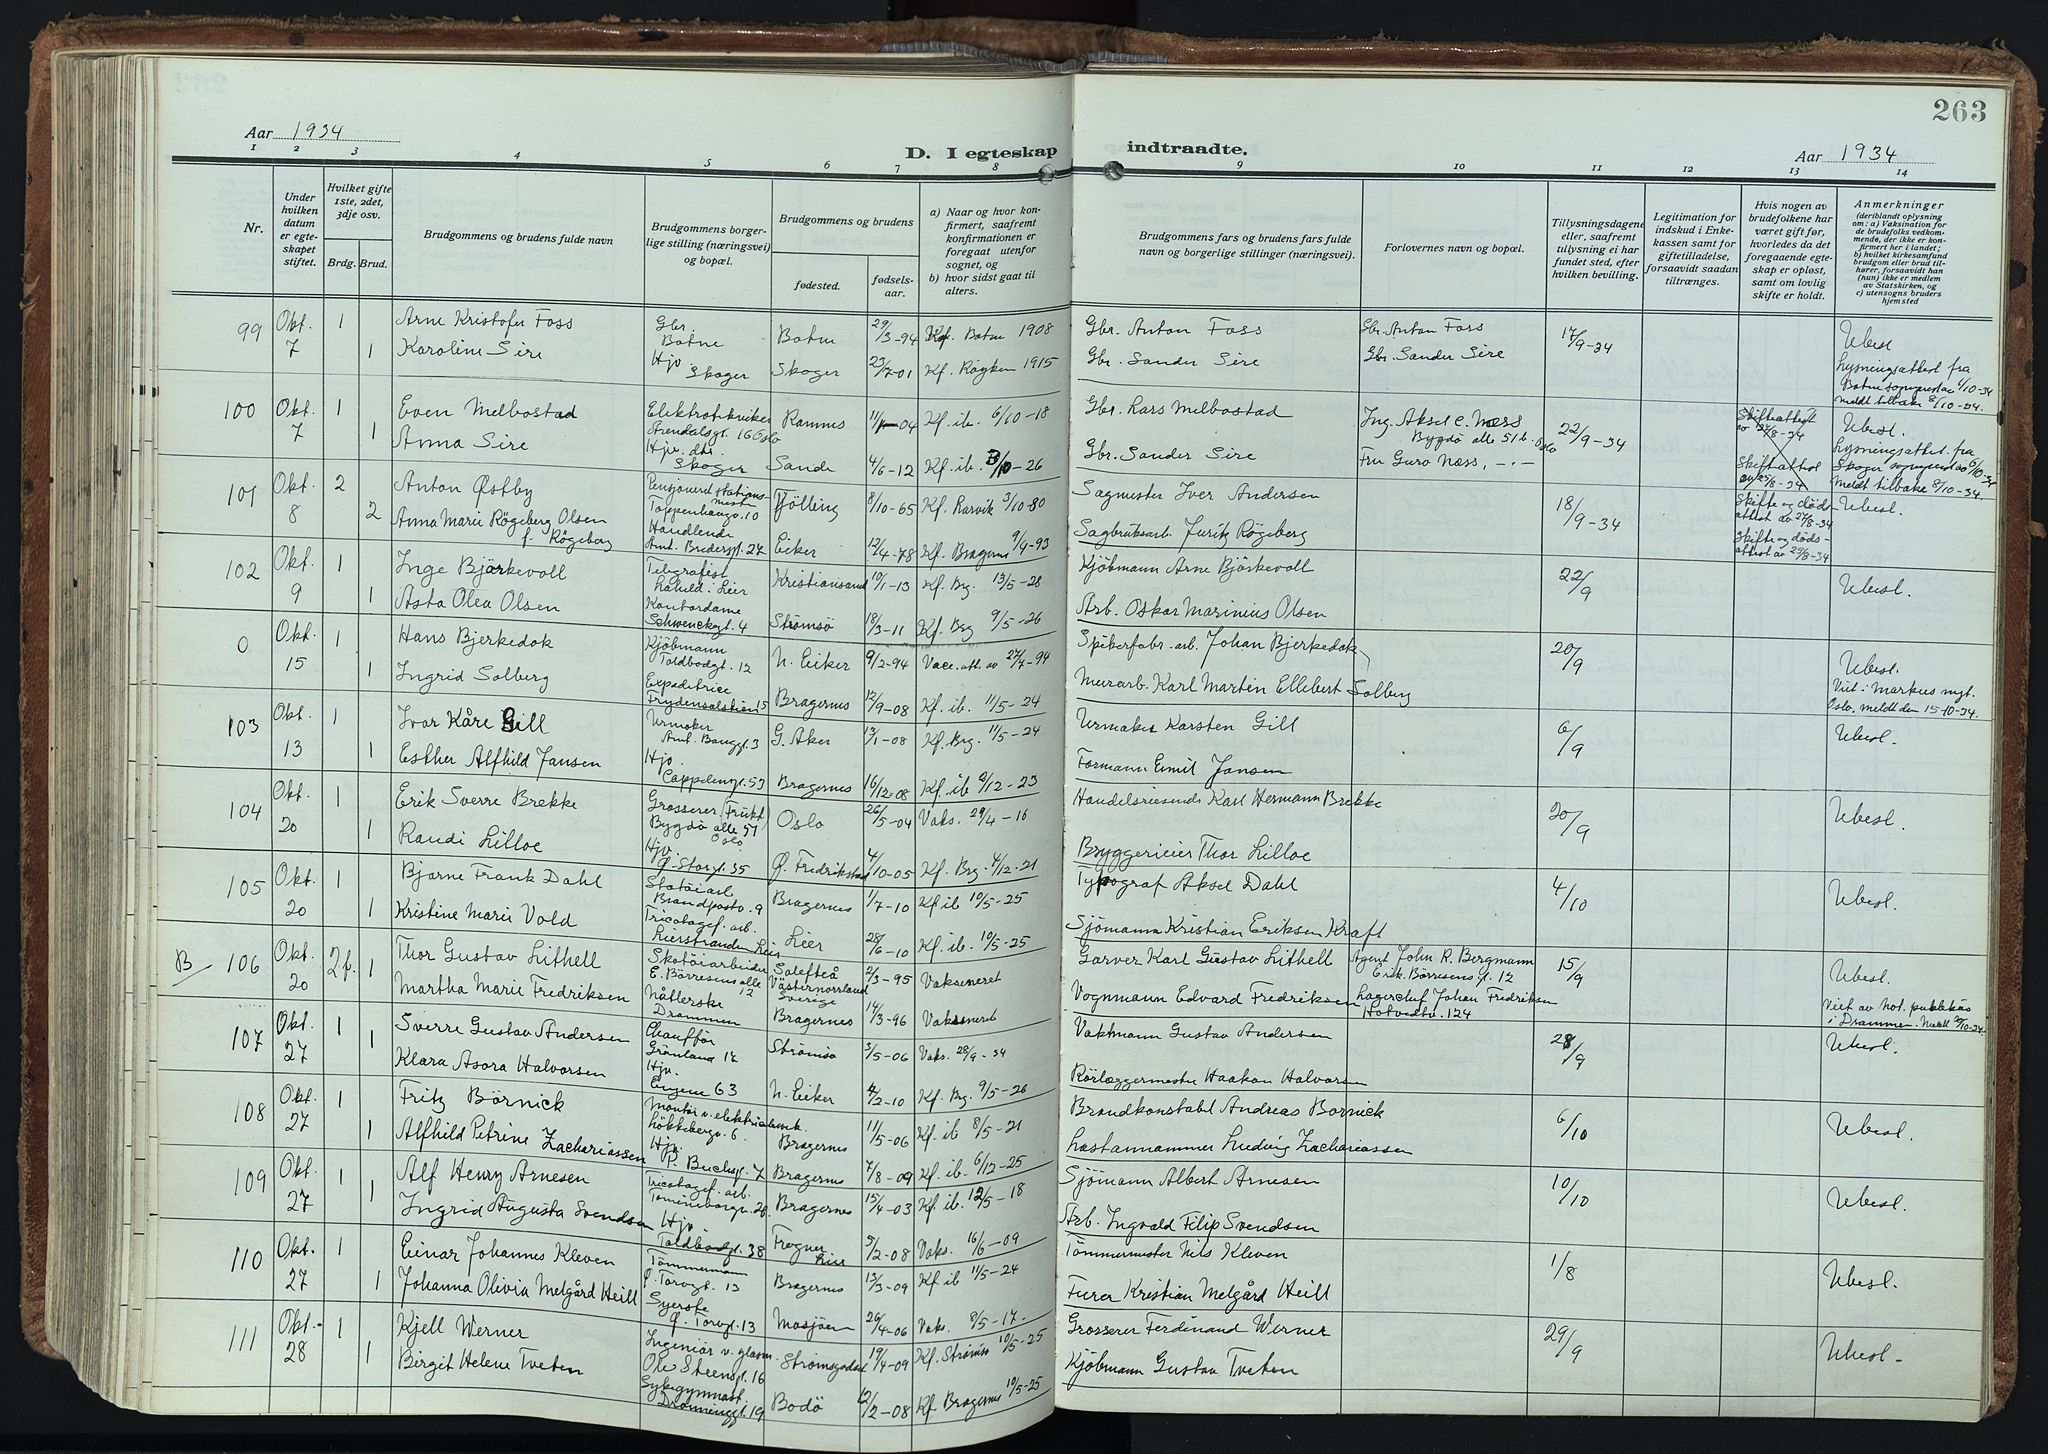 263
Aar 1934
D. I egteskap indtraadte.
Aar 1934
1 2 3 4 5 6 7 8 9 10 11 12 13 14
Nr.
Under hvilken datum er egteskapet stiftet.
Hvilket gifte 1ste, 2det, 3dje osv.
Brdg. Brud.
Brudgommens og brudens fulde navn
Brudgommens borgerlige stilling (næringsvei) og bopæl.
Brudgommens og brudens
fødested.
fødselsaar.
a) Naar og hvor konfirmert, saafremt konfirmationen er foregaat utenfor sognet, og
b) hvor sidst gaat til alters.
Brudgommens fars og brudens fars fulde navn og borgerlige stillinger (næringsvei).
Forlovernes navn og bopæl.
Tillysningsdagene eller, saafremt tillysning ei har fundet sted, efter hvilken bevilling.
Legitimation for indskud i Enkekassen samt for giftetilladelse, forsaavidt saadan tiltrænges.
Hvis nogen av brudefolkene har været gift før, hvorledes da det foregaaende egteskap er opløst, samt om lovlig skifte er holdt.
Anmerkninger
(deriblandt oplysning om: a) Vaksination for de brudefolks vedkommende, der ikke er konfirmert her i landet; b) hvilket kirkesamfund brudgom eller brud tilhører, forsaavidt han (hun) ikke er medlem av Statskirken, og c) utensogns bruders hjemsted
99 Okt. 7 1 Arne Kristofer Foss Gbr. Botne Botne 29/3-94 Kf. Botne 1908 Gbr. Anton Foss Gbr. Anton Foss 17/9-34 Ubesl.
1 Karoline Sire Hjv. Skoger Skoger 23/7-01 Kf. Røyken 1915 Gbr. Sander Sire Gbr. Sander Sire Lysningsattest fra Botne sogneprest av 1/10-34 meldt tilbake 8/10-34.
100 Okt. 7 1 Even Melbostad Elektrotekniker Arendalsgt. 16 Oslo Ramnes 04 Kf. ib. 6/10-18 Gbr. Lars Melbostad Ing. Aksel C. Næss Bygdö alle 51 b. Oslo 22/9-34 Skifteattest av 27/8-34 Ubesl.
1 Anna Sire Hjv. Skoger Sande 4/6-12 Kf. ib. 3/10-26 Gbr. Sander Sire Fru Guro Næss, -.- Skifteattest Lysningsattest fra Skoger sogneprest av 6/10-34 Meldt tilbake 8/10-34.
101 Okt. 8 2 Anton Østby Pensjonert stationsmester Toppenhaugv. 10 Tjölling 8/10-65 Kf. Larvik 3/10-80 Sagmester Iver Andersen 18/9-34 Skifte og dödsattest av 27/8-34 Ubesl.
2 Anna Marie Rögeberg Olsen f. Rögeberg Handlende Amt. Bredersgt. 27 Eiker 12/4-78 Kf. Bragernes 9/4-93 Sagbruksarb. Juritz Rögeberg Skifte og dödsattest av 29/8-34
102 Okt. 9 1 Inge Bjørkevoll Telegrafist Lahild. Lier Kristiansand 10/1-13 Kf. Brg. 13/5-28 Kjöbmann Arne Björkevoll 22/9 Ubesl.
1 Asta Olea Olsen Kontordame Schwenckegt. 4 Strømsö 18/3-11 Kf. Brg 9/5-26 Arb. Oskar Marinius Olsen
0 Okt. 15 1 Hans Bjerkedok Kjöbmann Toldbodgt. 12 N. Eiker 9/2-94 Vacc. att. av 27/4-94 Spikerfabr. arb. Johan Bjerkedok 20/9 Ubesl.
1 Ingrid Solberg Expeditrice Frydensalstien 15 Bragernes 12/9-08 Kf. ib. 11/5-24 Murarb. Karl Martin Ellebert Solberg Viet i Markus mgt. Oslo, meldt den 15-10-34.
103 Okt. 13 1 Ivar Kåre Gill Urmaker Amt. Bangsgt. 3 G. Aker 13/1-08 Kf. Brg. 11/5-24 Urmaker Karsten Gill 6/9 Ubesl.
1 Esther Alfhild Jansen Hjv. Cappelensgt. 53 Bragernes 16/12-08 Kf. ib 9/12-23 Formann Emil Jansen
104 Okt. 20 1 Erik Sverre Brekke Grosserer (Frukt) Bygdö alle 51 Oslo Oslo 26/5-04 Vaks. 29/4-16 Handelsreisende Karl Hermann Brekke 20/9 Ubesl.
1 Randi Lilloe Hjv. Ø. Storgt. 35 Ø. Fredrikstad 4/10-05 Kf. Brg. 4/12-21 Bryggerieier Thor Lilloe
105 Okt. 20 1 Bjarne Frank Dahl Skotöiarb. Brandpostv. 9 Bragernes 1/7-10 Kf ib 10/5-25 Typograf Aksel Dahl 4/10 Ubesl.
1 Kristine Marie Vold Tricotagef. arb. Lierstranden Lier Lier 28/6-10 Kf. ib. 10/5-25 Sjömann Kristian Eriksen Kraft
B 106 Okt. 20 2 f. Thor Gustav Lithell Skotöiarbeider E. Börresens alle 12 Salefteå Västernorrland Sverige 2/3-95 Vaksineret Garver Karl Gustav Lithell Agent John R. Bergmann Erik Börresens gt. 12 15/9 Ubesl.
1 Martha Marie Fredriksen Nåtlerske Drammen Bragernes 14/3-96 Vaksineret Vognmann Edvard Fredriksen Lagerchef Johan Fredriksen Hotvedtv. 124 Viet av not. publikus i Drammen. Meldt 20/10-34
107 Okt. 27 1 Sverre Gustav Andersen Chaufför Grönland 12 Strømsö 3/5-06 Vaks. 28/9-34 Vaktmann Gustav Andersen 28/9 Ubesl.
1 Klara Asora Halvorsen Hjv. Engene 63 N. Eiker 4/2-10 Kf. Brg. 9/5-26 Rörlæggermester Haakon Halvorsen
108 Okt. 27 1 Fritz Börnick Montör v. elektricitetsverk. Lökkebergv. 6. Bragernes 11/5-06 Kf. ib 8/5-21 Brandkonstabel Andreas Bornick 6/10 Ubesl.
1 Alfhild Petrine Zachariassen Hjv. P. Buchsgt. 7 Bragernes 7/8-09 Kf. ib. 6/12-25 Lastannammer Ludvig Zachariassen
109 Okt. 27 1 Alf Henry Arnesen Tricotagef. arb. Tomineborgv. 20. Bragernes 15/4-03 Kf. ib. 12/5-18 Sjömann Albert Arnesen 10/10 Ubesl.
1 Ingrid Augusta Svendsen Hjv. Toldbodgt. 38 Frogner Lier 5/2-08 Vaks. 16/6-09 Arb. Ingvald Filip Svendsen
110 Okt. 27 1 Einar Johannes Kleven Tömmermann Ø. Torvgt. 13 Bragernes 13/3-09 Kf. ib 11/5-24 Tömmermester Nils Kleven 1/8 Ubesl.
1 Johanna Olivia Melgård Heill Syerske Ø. Torvgt. 13 Mosjøen 26/4-06 Vaks. 9/5-17. Furer Kristian Melgård Heill
111 Okt. 28 1 Kjell Werner Ingeniör v. glasm. Ole Steensgt. 16 Strømsgodset 19/4-09 Kf. Strømsö 10/5-25 Grosserer Ferdinand Werner 29/9 Ubesl.
1 Birgit Helene Tveten Sykegymnast Dronninggt. 19 Bodö 12/2-08 Kf. Bragernes 10/5-25 Kjöbmann Gustav Tveten